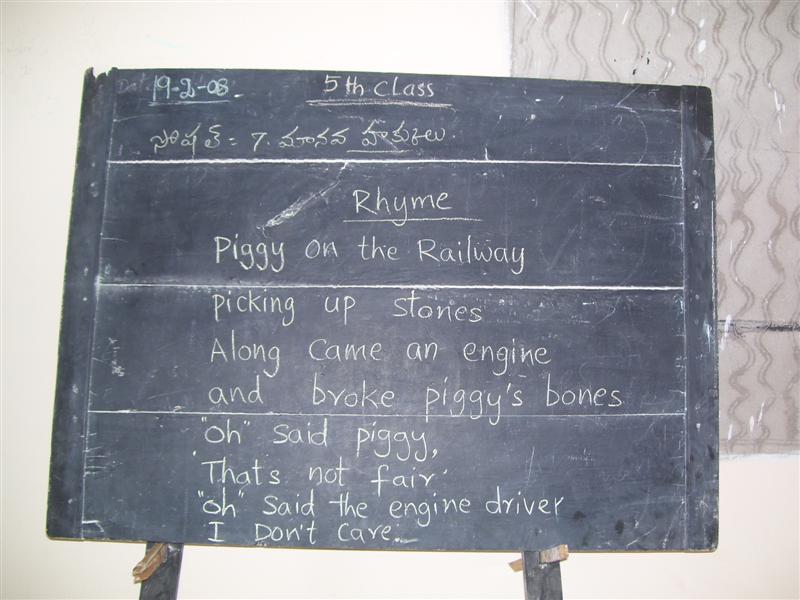 19-2-08. 5th Class
సోషల్ = 7. మానవ హక్కులు.
Rhyme
Piggy on the Railway
picking up stones
Along Came an engine
and broke piggy's bones
"oh" said piggy,
'That's not fair'
"oh" said the engine driver
I Don't Care.